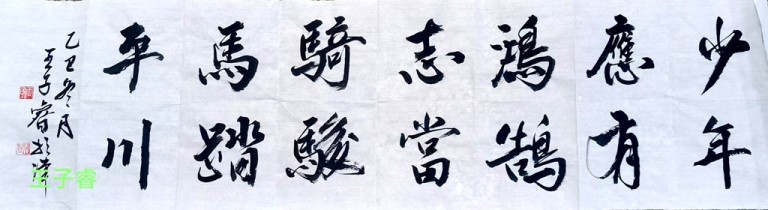 少年
應有
鴻鵠
志當
騎駿
馬踏
平川
冬月
王子睿於
王子睿